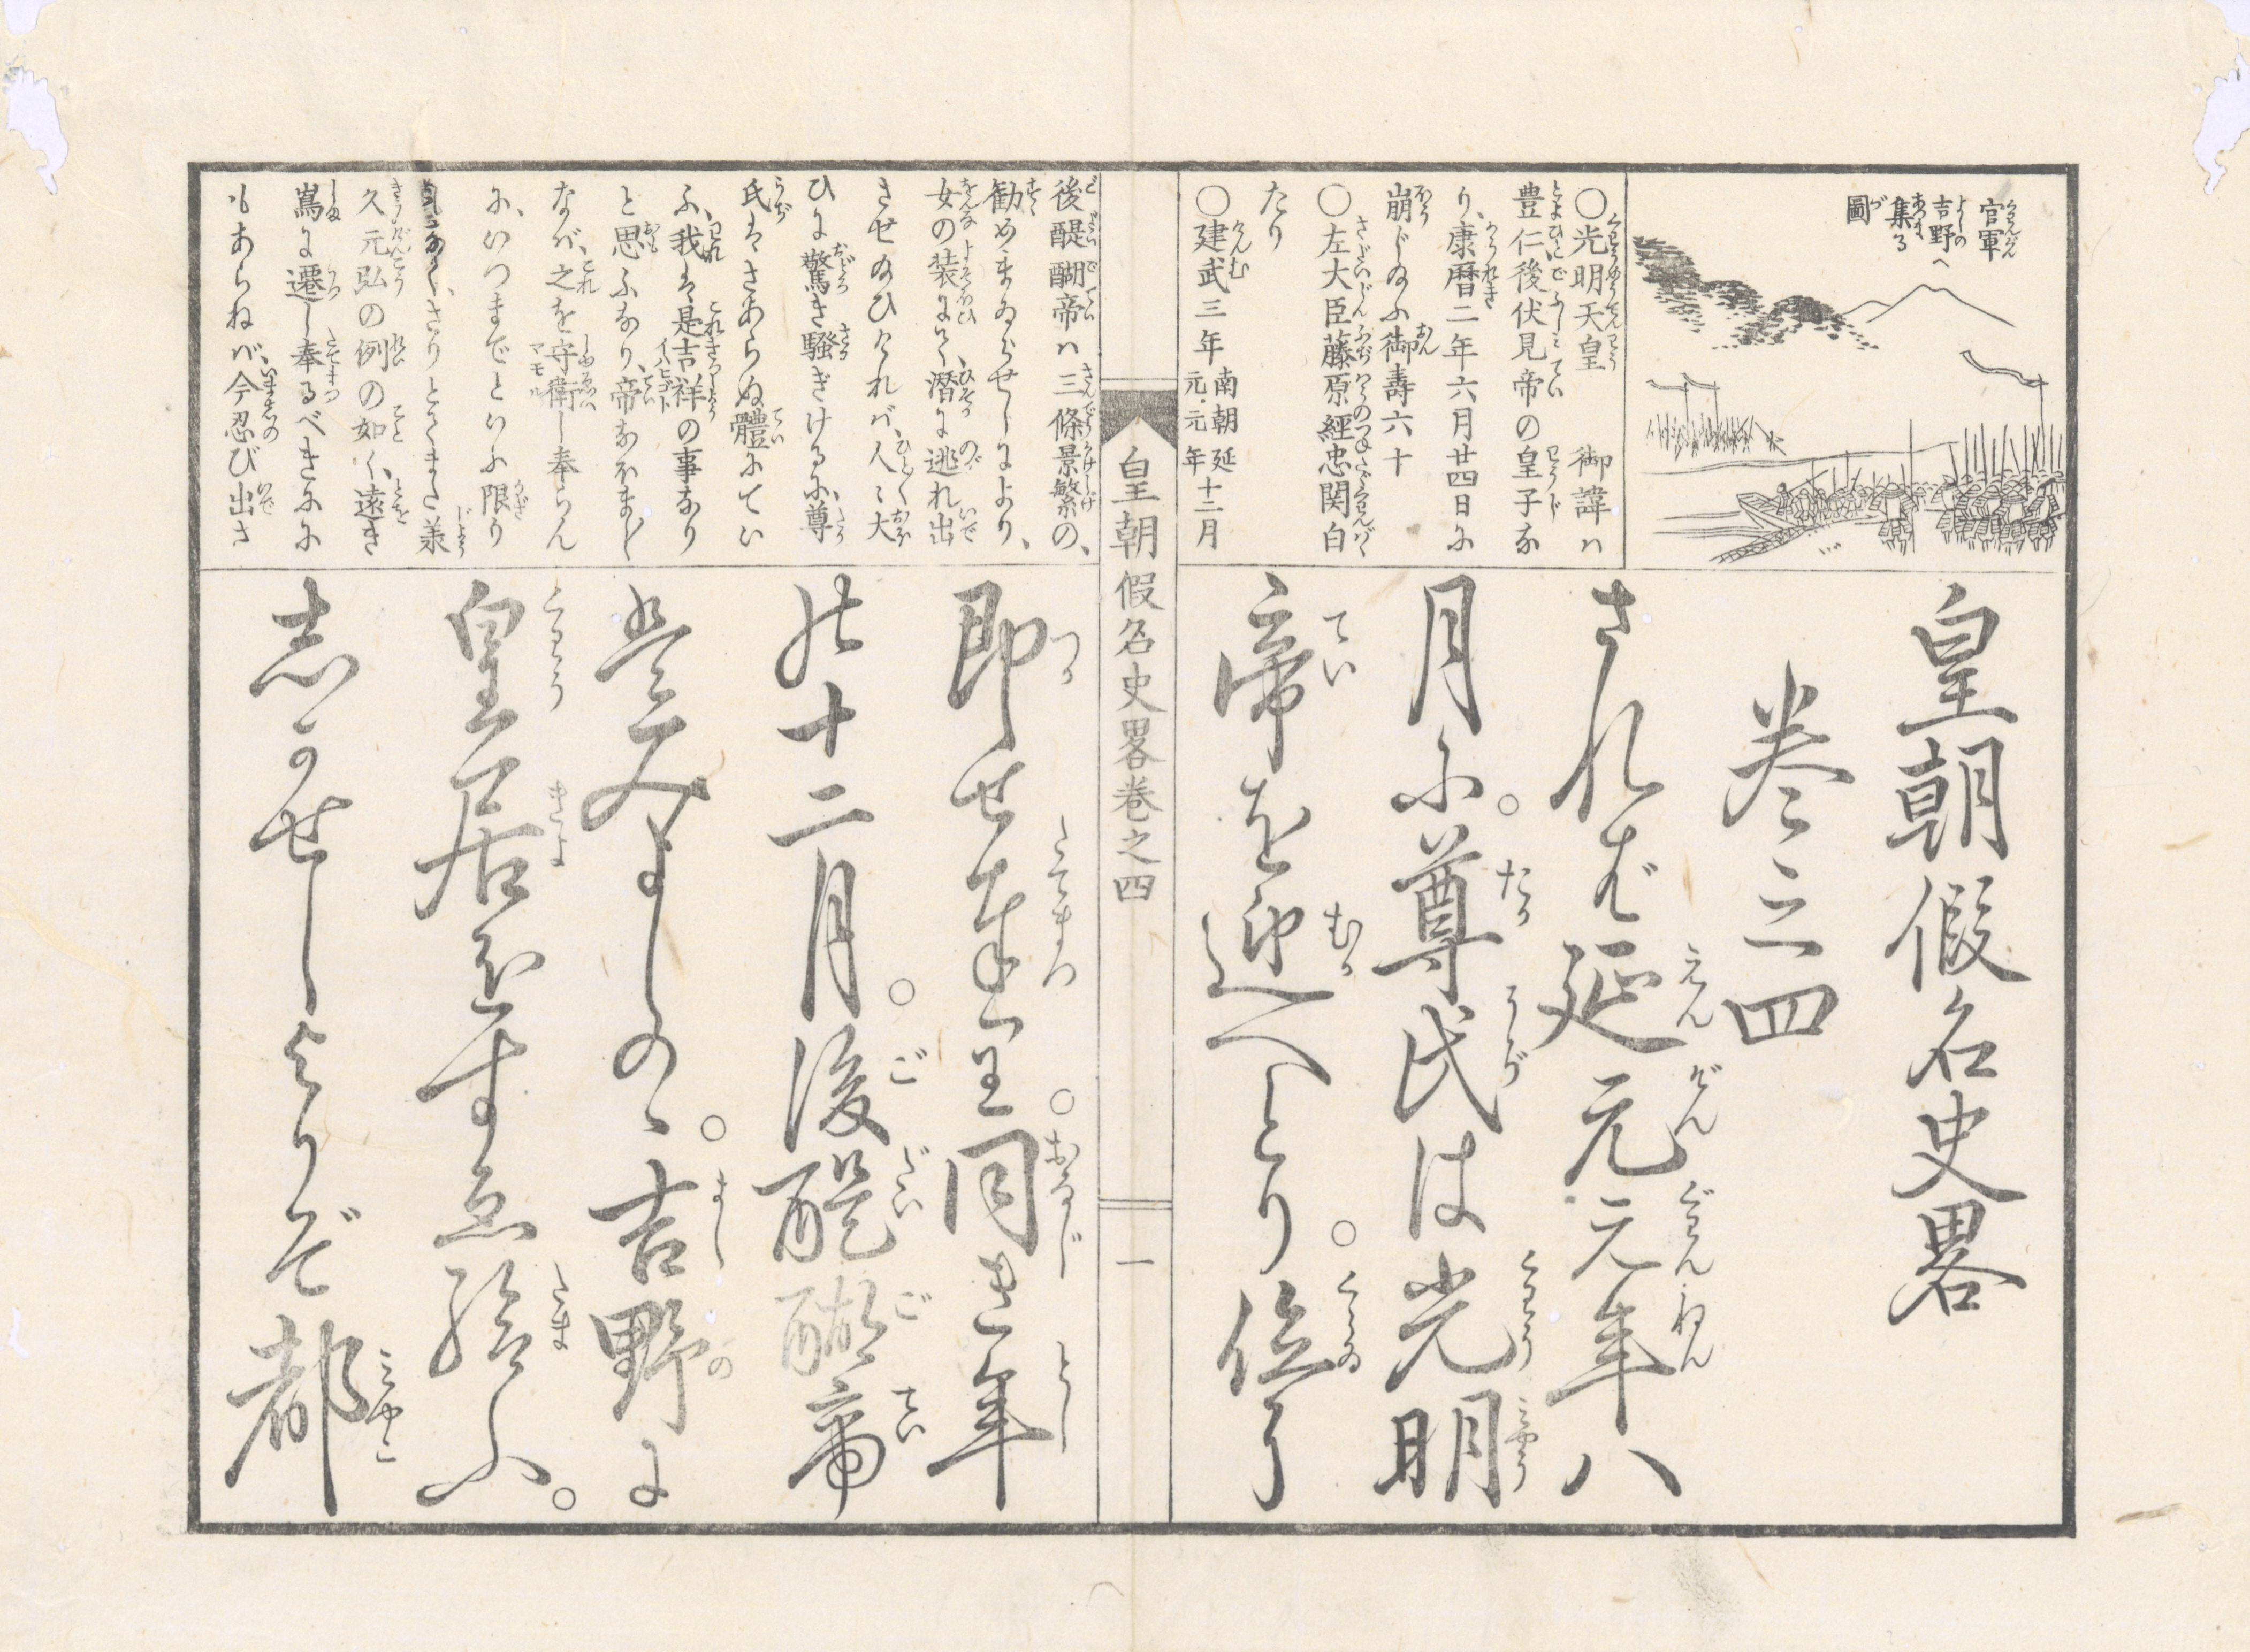 皇朝假名史畧
巻之四
されば延元元年八
月に○尊氏は光明
帝を迎へとり○位に
官軍
吉野へ
集る
圖
○光明天皇 御諱ハ
豊仁後伏見帝の皇子な
り、康暦二年六月廿四日に
崩じ給ふ御壽六十
○左大臣藤原經忠関白
たり
○建武三年南朝延元・元年十二月
皇朝假名史畧巻之四
一
後醍醐帝ハ三條景繁の、
勧めまゐらせしにより、
女の装にて、潜に逃れ出
させ給ひければ、人々大
ひに驚き騒ぎけるに、尊
氏はさあらぬ體にてい
ふ、我は是吉祥の事なり
と思ふなり、帝なほまし〳〵
なば、之を守衛し奉らん
に、いつまでといふ限り
さりとてまた承
久元弘の例の如く、遠き
嶌に遷し奉るべきにに
もあらねば、今忍び出さ
即せ奉里○同き年
の十二月○後醍醐帝
はみよしのゝ○吉野に
皇居をすゑ給ふ○
志かせしよりぞ都